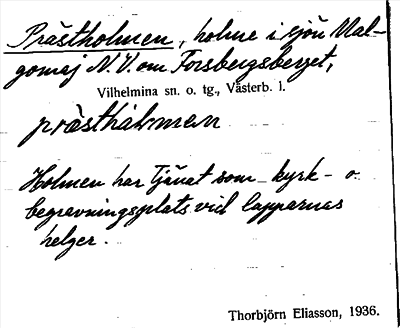 Prästholmen, holme i sjön Mal-
gomaj N.V. om Forsbergsberget,
Vilhelmina sn. o. tg., Västerb. l.
pràsthálmen
Holmen har tjänat som kyrk- o.
begravningsplats vid lapparnas
helger.
Thorbjörn Eliasson, 1936.